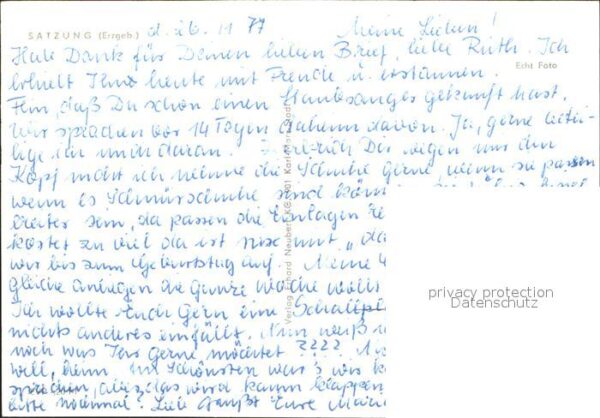 SATZUNG (Erzgeb.) d. 26. 11 77 Meine Lieben!
Hab Dank für Deinen lieben Brief, liebe Ruth. Ich
Echt Foto
erhielt Ihn heute mit Freude u. erstaunen.
daß Du schon einen Staubsauger gekauft hast,
Wir sprachen vor 14 Tagen daheim davon. Ja, gerne
lige ich mich daran. Dir wegen uns den
Kopf nicht ich nehme die Schuhe Gerne, wenn sie passen
wenn es Schnürschuhe sind
breiter sein, da passen die Einlagen
kostet zu viel da ist nix mit, "da
wir bis zum Geburtstag auf. Meine
gleiche anliegen die ganze Woche wollt
Ich wollte Euch Gern eine Schallpl
nichts anderes einfällt. Nun weiß
noch was Ihr Gerne möchtet ????
will, denn am Schönsten wär's wir
sprechen, aber das wird kaum klappen
bitte nochmal? Liebe Grüße Eure
Verlag Erhard Neubert KG, 901 Karl-Marx-Stadt
privacy protection
Datenschutz